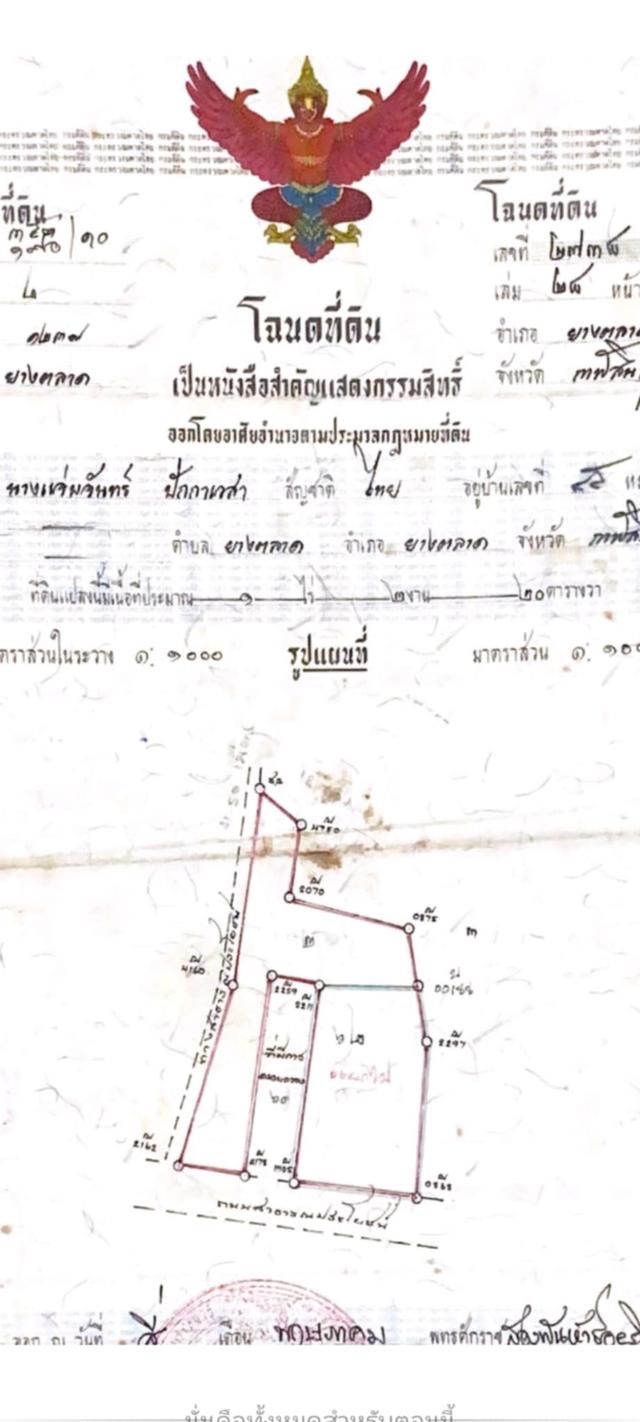 ที่ดิน
โฉนดที่ดิน
เลขที่ ๒๗๓๘
๒
เล่ม ๒๘ หน้า
๑๒๓๗
อำเภอ ยางตลาด
ยางตลาด
จังหวัด กาฬสิน
โฉนดที่ดิน
เป็นหนังสือสำคัญแสดงกรรมสิทธิ์
ออกโดยอาศัยอำนาจตามประมวลกฎหมายที่ดิน
นางแจ่มจันทร์ ปักกาเวสา สัญชาติ ไทย อยู่บ้านเลขที่
ตำบล ยางตลาด อำเภอ ยางตลาด จังหวัด กาฬสิน
ที่ดินแปลงนี้มีเนื้อที่ประมาณ ๑ ไร่ ๒ งาน ๒๐ ตารางวา
ตราส่วนในระวาง ๑: ๑๐๐๐ รูปแผนที่ มาตราส่วน ๑: ๑๐๐
2070
ทางสาธารณประโยชน์
2259
2297
๑๒
2162
ถนนสาธารณประโยชน์
ออก ณ วันที่ สี่ เดือน พฤษภาคม พุทธศักราช สองพันห้าร้อย
นั่นคือทั้งหมดสำหรับตอนนี้